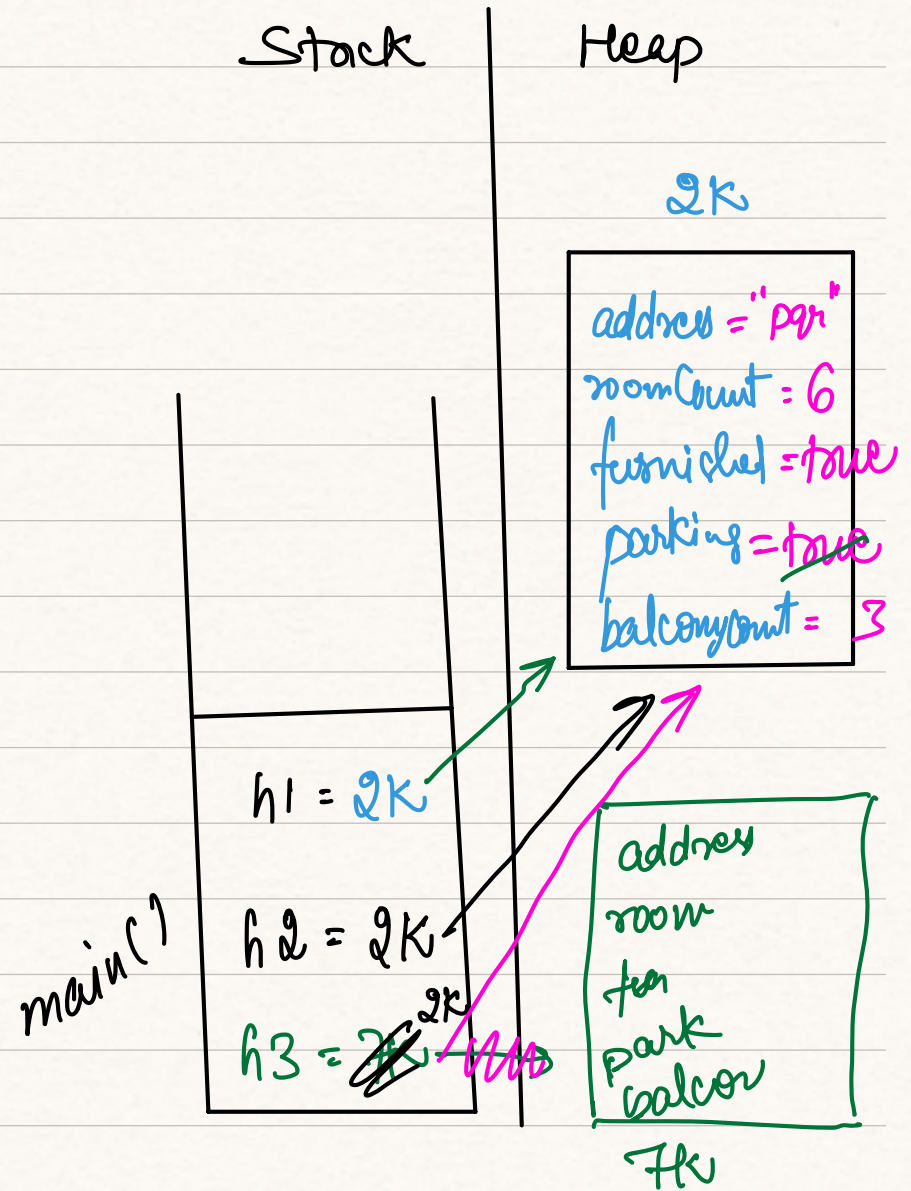 Stack
Heap
2K
address = "pqr"
roomCount = 6
furnished = true
parking = true
balconycount = 3
h1 = 2K
h2 = 2K
2K
h3 = 7K
main()
address
room
fur
park
balcon
7K